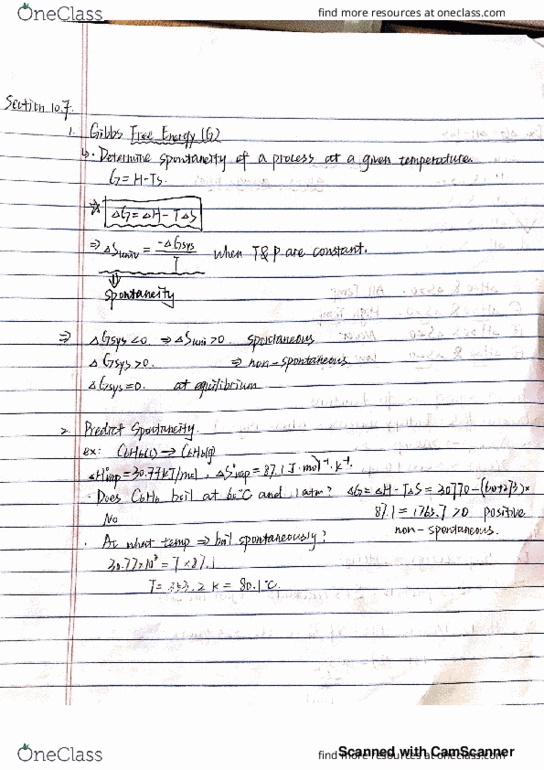 OneClass
find more resources at oneclass.com
Section 10.7.
1. Gibbs Free Energy (G)
↳ · Determine spontaneity of a process at a given temperature.
G = H-TS.
☆ ΔG = ΔH - TΔS
⇒ ΔSuniv = -ΔGsys / T when T&P are constant.
⇓
spontaneity
⇒ ΔGsys<0 ⇒ ΔSuni >0 spontaneous
ΔGsys>0. ⇒ non-spontaneous
ΔGsys=0. at equilibrium
2. Predict Spontaneity.
ex: C6H6(l) → C6H6(g)
ΔH°vap = 30.77kJ/mol, ΔS°vap = 87.1 J·mol⁻¹·K⁻¹.
· Does C6H6 boil at 60°C and 1atm? ΔG=ΔH-TΔS = 30770-(60+273)×
No 87.1 = 1763.7 >0 positive
non-spontaneous.
· At what temp ⇒ boil spontaneously?
30.77×10³ = T × 87.1
T = 353.2 K = 80.1°C.
Scanned with CamScanner
OneClass
find more resources at oneclass.com